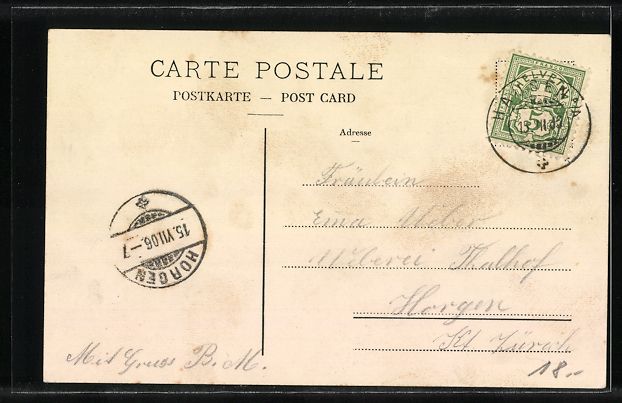 CARTE POSTALE
POSTKARTE — POST CARD
Adresse
HELVETIA
5
15. VII. 06.–7
HORGEN
Fräulein
Ema Weber
Weberei Thalhof
Horgen
Kt. Zürich
Mit Gruss B. M.
18.-